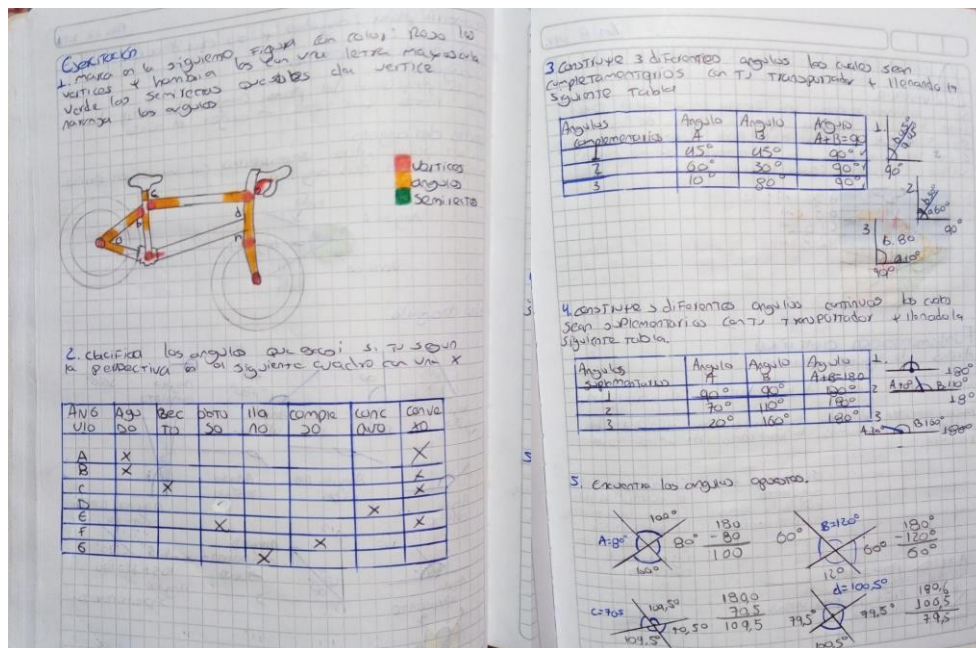 Ejercitación
1. Marca en la siguiente Figura con color: Rojo los
verticos + hombia los con una letra mayoscula
verde las semirectas que sales del vertice
naranja los angulos
verticos
angulos
Semirecta
c
b
a
d
n
2. clacifica los angulos que si. Tu segun
la perspectiva en el siguiente cuadro con una x
ANG ULO | Agu DO | Rec TO | obtu SO | lla no | comple so | conc avo | conve xo
A | x | x
B | x | x
C | x | x
D | x
E | x | x
F | x
G | x
3 construye 3 diferentes angulos los cuales sean
complementarios con Tu Transportador + llenando la
siguiente Tabla
Angulos complementarios | Angulo A | Angulo B | Angulo A+B=90
1 | 45° | 45° | 90°
2 | 60° | 30° | 90°
3 | 10° | 80° | 90°
1.
b45°
a45
90°
2
a60°
90°
3
b.80
a10°
90°
4. construye 3 diferentes angulos continuos los cuales
sean suplementarios con Tu Transportador + llenado la
siguiente Tabla.
Angulos suplementarios | Angulo A | Angulo B | Angulo A+B=180
1 | 90° | 90° | 180°
2 | 70° | 110° | 180°
3 | 20° | 160° | 180°
1.
180°
2
B110°
18°
3
B160°
180°
5. encuentra los angulos opuestos.
100°
A=80°
80°
100°
180
-80
100
60°
B=120°
60°
120
180°
-120°
60°
C=705
109,50
70,50
109.5°
180,0
70,5
109,5
d=100,5°
79,5°
79,5°
100,5°
180,0
100,5
79,5